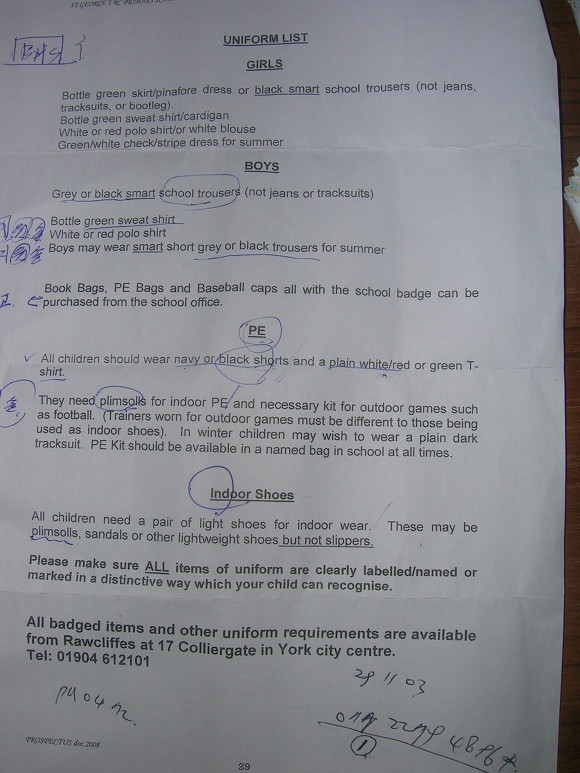 ST GEORGE'S RC PRIMARY
BHS
UNIFORM LIST
GIRLS
Bottle green skirt/pinafore dress or black smart school trousers (not jeans,
tracksuits, or bootleg).
Bottle green sweat shirt/cardigan
White or red polo shirt/or white blouse
Green/white check/stripe dress for summer
BOYS
Grey or black smart school trousers (not jeans or tracksuits)
Bottle green sweat shirt
White or red polo shirt
Boys may wear smart short grey or black trousers for summer
Book Bags, PE Bags and Baseball caps all with the school badge can be
purchased from the school office.
PE
All children should wear navy or black shorts and a plain white/red or green T-
shirt.
They need plimsolls for indoor PE and necessary kit for outdoor games such
as football. (Trainers worn for outdoor games must be different to those being
used as indoor shoes). In winter children may wish to wear a plain dark
tracksuit. PE Kit should be available in a named bag in school at all times.
Indoor Shoes
All children need a pair of light shoes for indoor wear. These may be
plimsolls, sandals or other lightweight shoes but not slippers.
Please make sure ALL items of uniform are clearly labelled/named or
marked in a distinctive way which your child can recognise.
All badged items and other uniform requirements are available
from Rawcliffes at 17 Colliergate in York city centre.
Tel: 01904 612101
29 11 03
1
PROSPECTUS doc 2008
29